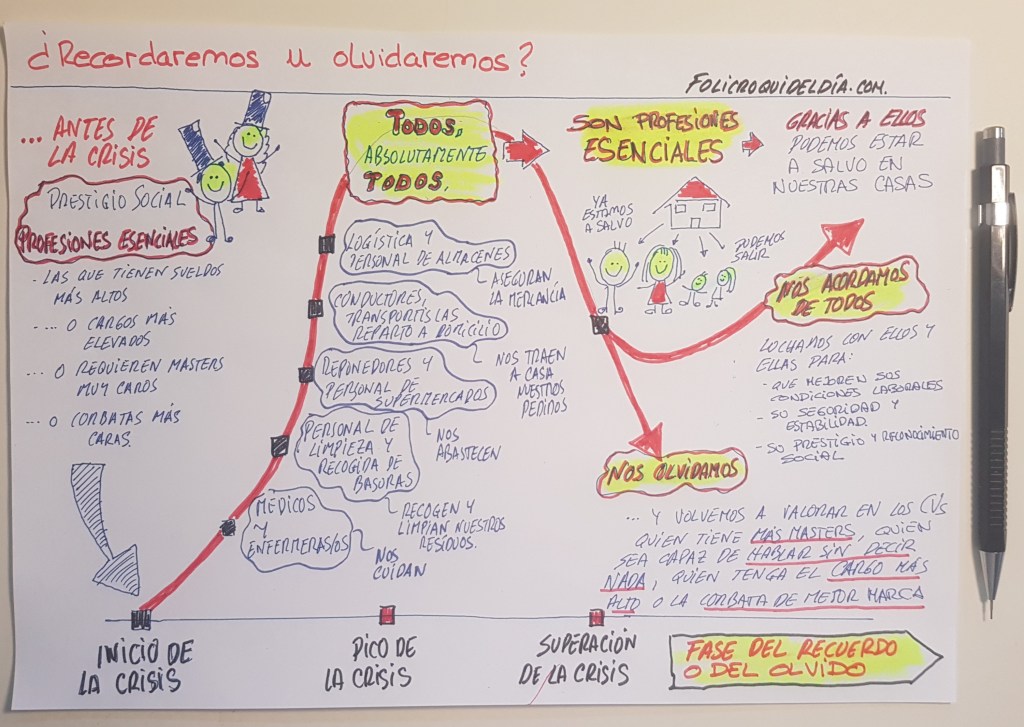 ¿Recordaremos u olvidaremos?
FOLICROQUIDELDÍA.COM.
... ANTES DE
LA CRISIS
PRESTIGIO SOCIAL
PROFESIONES ESENCIALES
- LAS QUE TIENEN SUELDOS
MÁS ALTOS
- ... O CARGOS MÁS
ELEVADOS
... O REQUIEREN MASTERS
MUY CAROS
... O CORBATAS MÁS
CARAS.
TODOS,
ABSOLUTAMENTE
TODOS.
LOGÍSTICA Y
PERSONAL DE ALMACENES
ASEGURAN
LA MERCANCÍA
CONDUCTORES,
TRANSPORTISTAS
REPARTO A DOMICILIO
NOS TRAEN
A CASA
NUESTROS
PEDIDOS
REPONEDORES Y
PERSONAL DE
SUPERMERCADOS
NOS
ABASTECEN
PERSONAL DE
LIMPIEZA Y
RECOGIDA DE
BASURAS
RECOGEN Y
LIMPIAN NUESTROS
RESIDUOS.
MÉDICOS
Y
ENFERMERAS/OS
NOS
CUIDAN
SON PROFESIONES
ESENCIALES
GRACIAS A ELLOS
PODEMOS ESTAR
A SALVO EN
NUESTRAS CASAS
YA
ESTAMOS
A SALVO
PODEMOS
SALIR
NOS ACORDAMOS
DE TODOS
LUCHAMOS CON ELLOS Y
ELLAS PARA:
- QUE MEJOREN SUS
CONDICIONES LABORALES
- SU SEGURIDAD Y
ESTABILIDAD.
- SU PRESTIGIO Y RECONOCIMIENTO
SOCIAL
NOS OLVIDAMOS
... Y VOLVEMOS A VALORAR EN LOS CVs
QUIEN TIENE MÁS MASTERS, QUIEN
SEA CAPAZ DE HABLAR SIN DECIR
NADA, QUIEN TENGA EL CARGO MÁS
ALTO O LA CORBATA DE MEJOR MARCA
INICIO DE
LA CRISIS
PICO DE
LA CRISIS
SUPERACIÓN
DE LA CRISIS
FASE DEL RECUERDO
O DEL OLVIDO